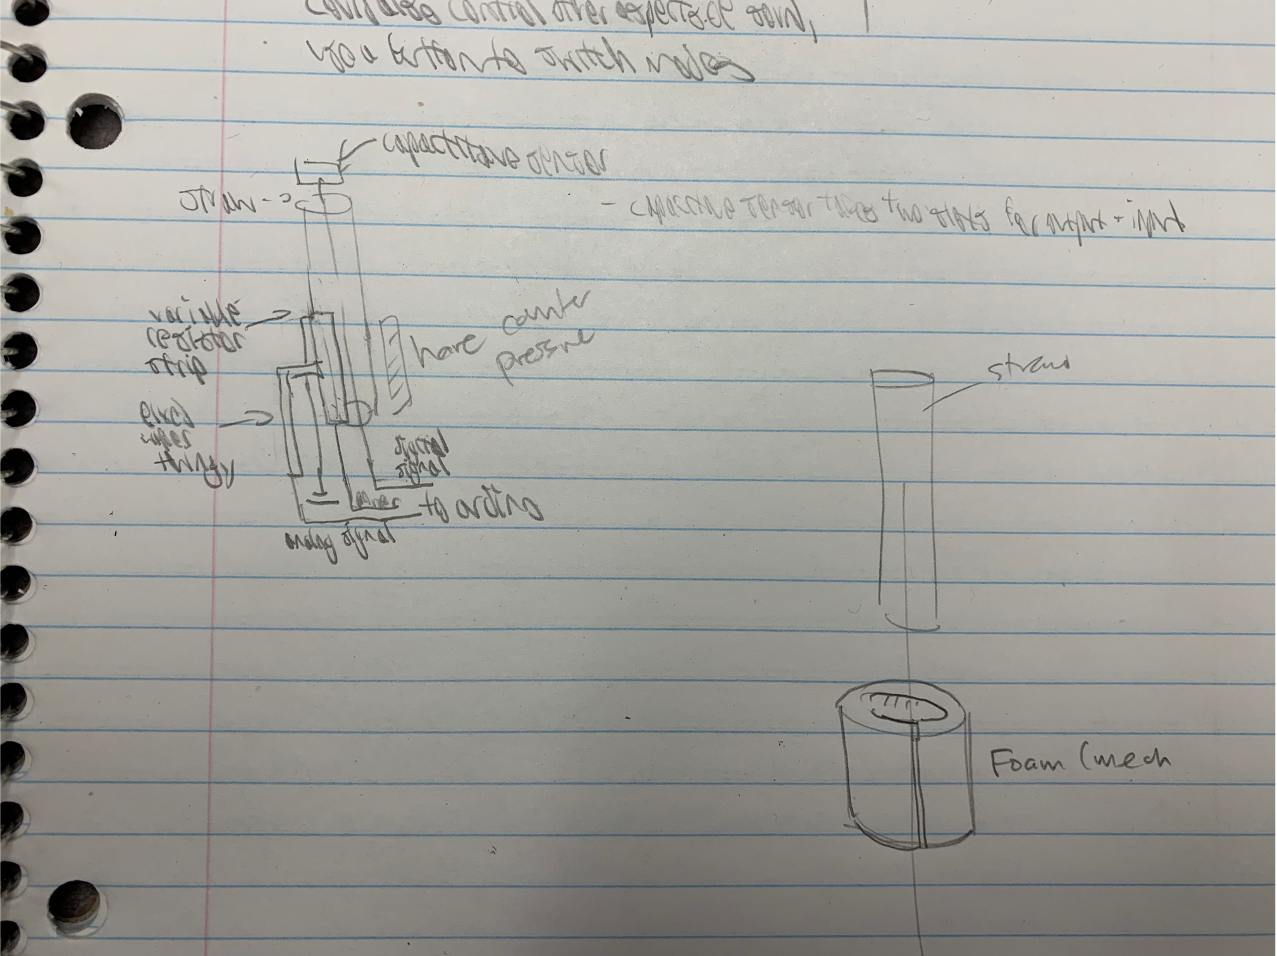 could also control other aspects of sound,
use a button to switch modes
capacitive sensor
straw
- capacitive sensor takes two slots for output + input
variable
resistor
strip
have counter
pressure
straw
fixed
wiper
thingy
digital
signal
power
to arduino
analog signal
Foam (mech